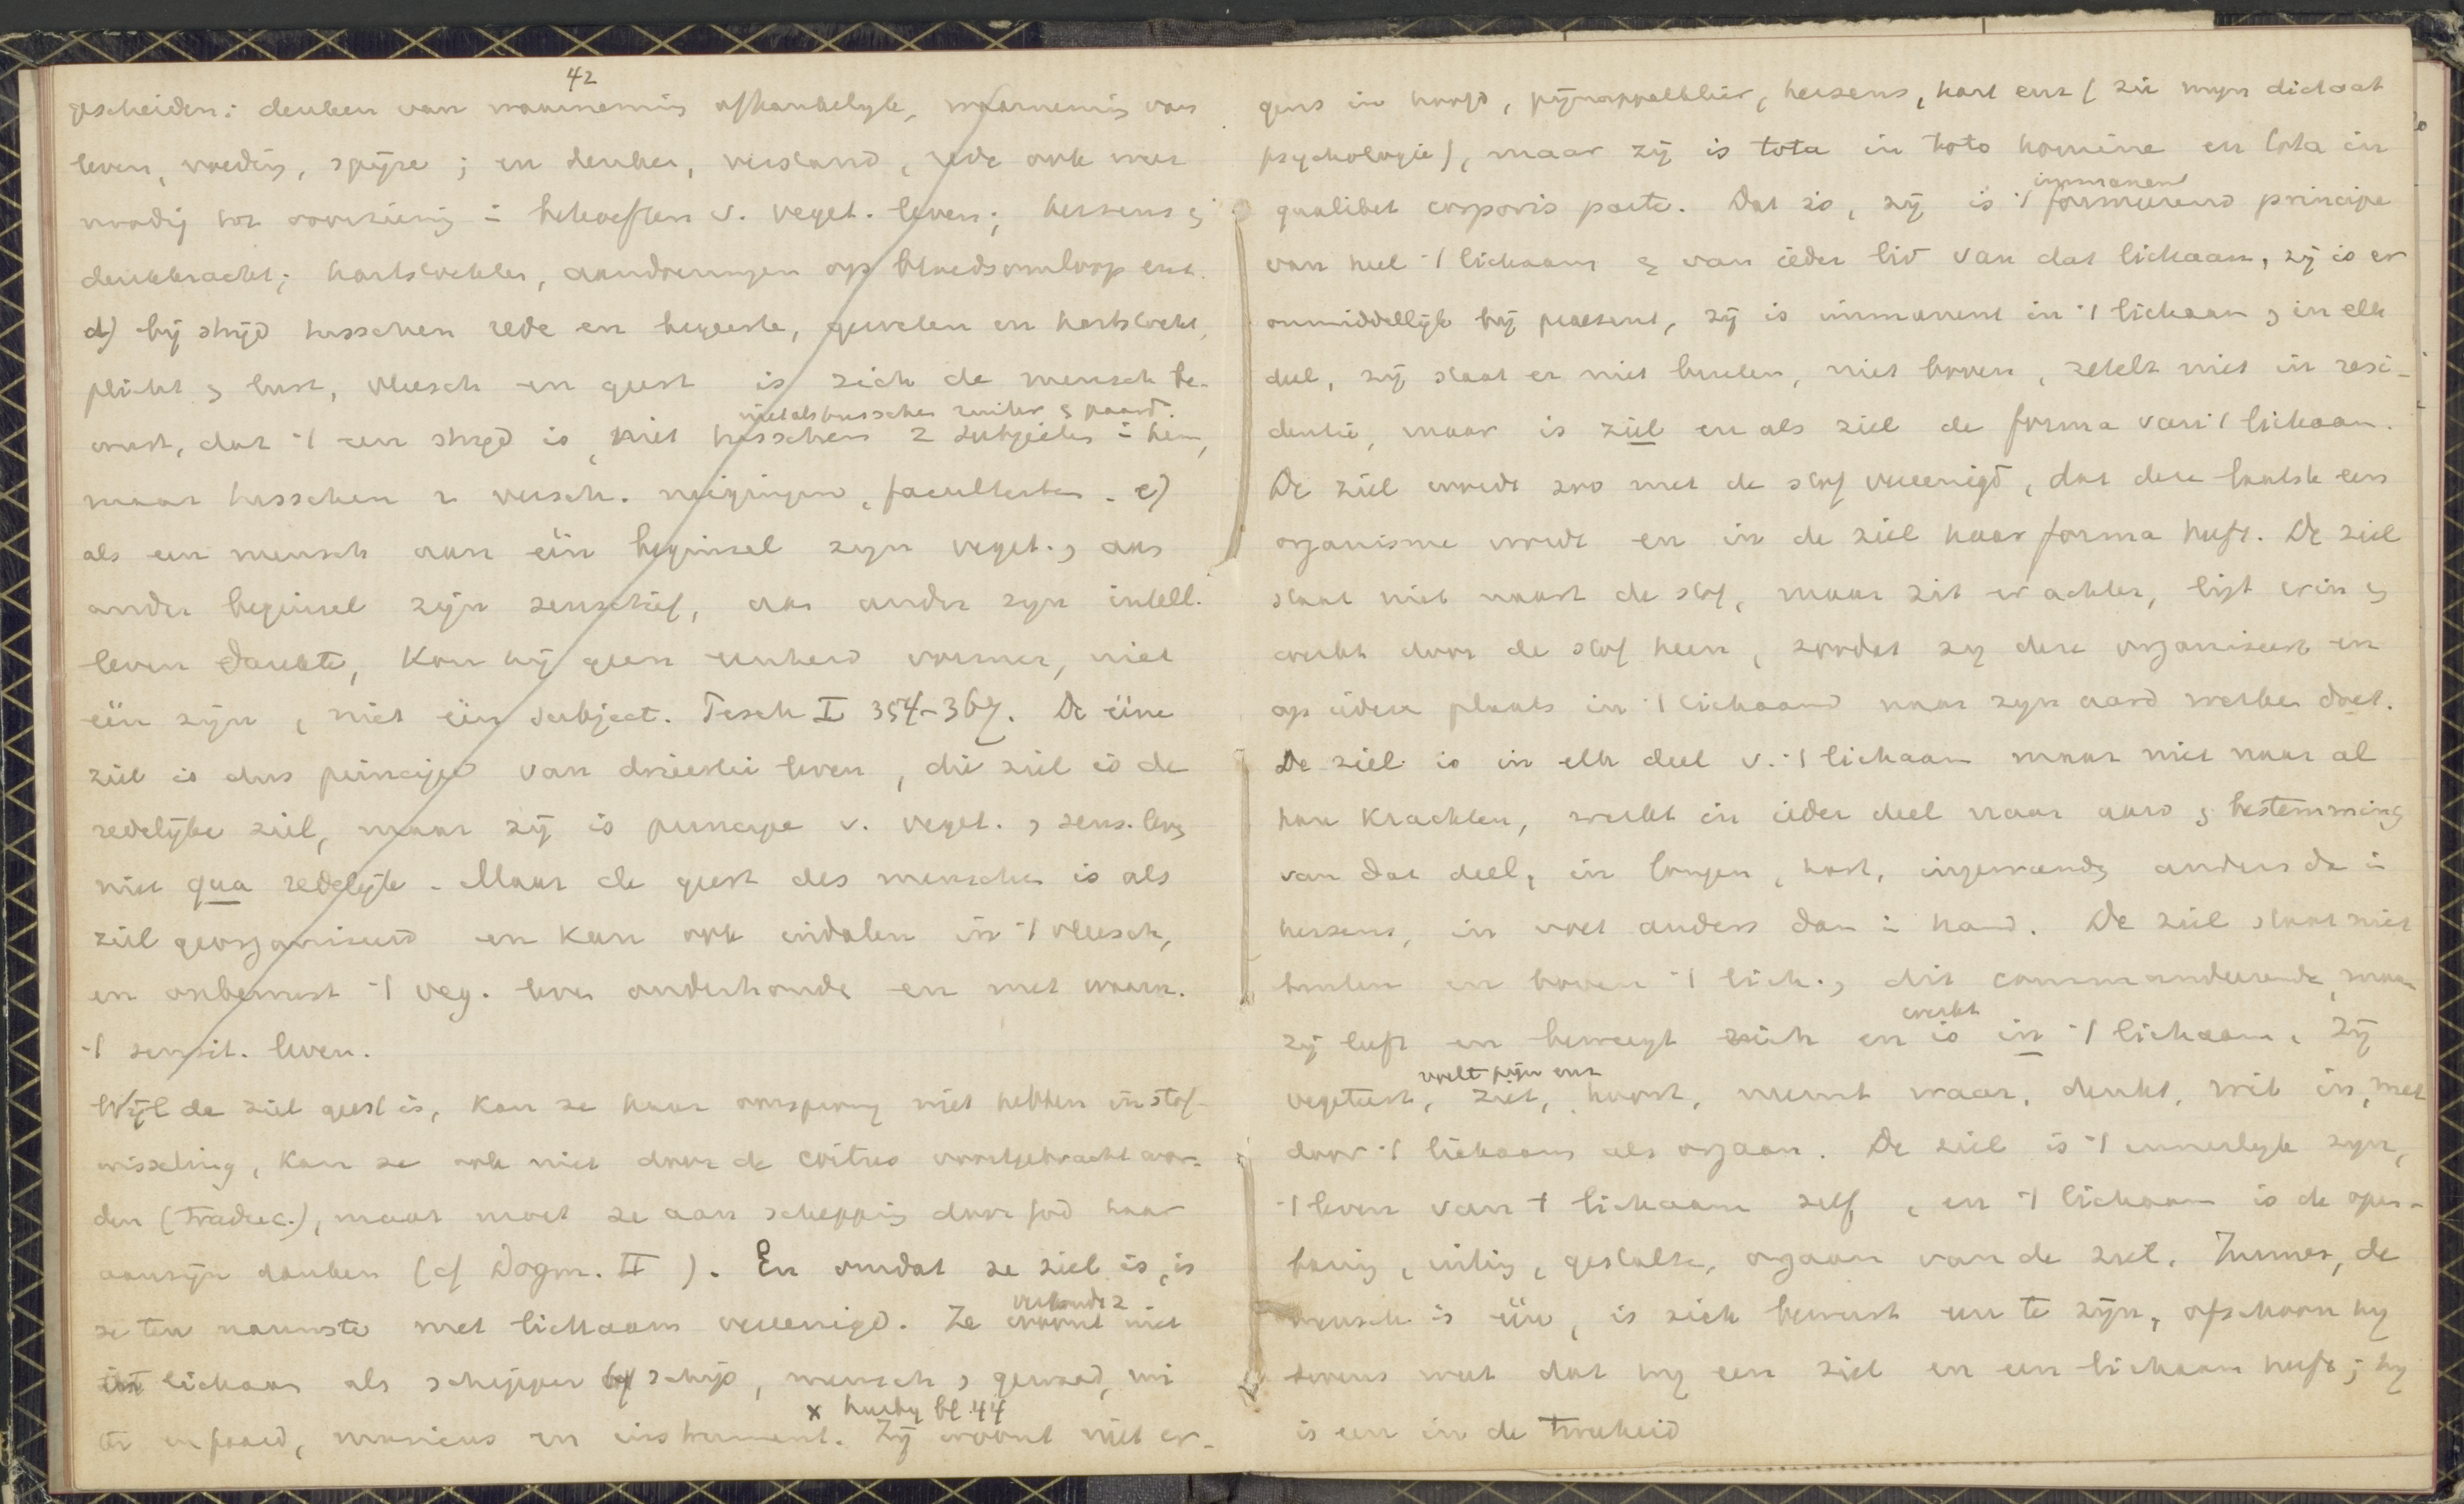 42
gescheiden: denken van waarneming afhankelyk, waarneming van
leven, voeding, spijze; en denken, verstand, rede ook weer
noodig tot voorziening i behoeften v. veget. leven; hersens &
denkkracht; hartstochten, aandoeningen op bloedsomloop enz.
d) bij strijd tusschen rede en begeerte, geweten en hartstocht,
plicht & lust, vleesch en geest is zich de mensch be-
niet als tusschen ruiter & paard.
wust, dat 't een strijd is, niet tusschen 2 subjecten i hem,
maar tusschen 2 versch. neigingen, faculteiten. e)
als een mensch aan één beginsel zyn veget., aan
ander beginsel zijn sensitief, aan ander zyn intell.
leven dankte, kon hij geen eenheid vormen, niet
één zijn, niet één subject. Pesch I 354-367. De ééne
ziel is dus principe van drieërlei leven, die ziel is de
redelijke ziel, maar zij is principe v. veget. & sens. leven
niet qua redelijke. Maar de geest des menschen is als
ziel georganiseerd en kan ook indalen in 't vleesch,
en onbewust 't veg. leven onderhouden en met waarn.
't sensit. leven.
Wijl de ziel geest is, kan ze haar oorsprong niet hebben in stof-
wisseling, kan ze ook niet door de coitus voortgebracht wor-
den (traduc.), maar moet ze aan schepping door God haar
aanzijn danken (cf Dogm. II ). En omdat ze ziel is, is
ze ten nauwste met lichaam vereenigd. Ze woont niet
in lichaam als schipper by schip, mensch & gewaad, rui
x hierby bl. 44
ter en paard, musicus en instrument. Zij woont niet er-
gens in hoofd, pijnappelklier, hersens, hart enz (zie myn dictaat
psychologie), maar zij is tota in toto homine en tota in
immanent
qualibet corporis parte. Dat is, zij is 't formeerend principe
van heel 't lichaam & van ieder lid van dat lichaam, zij is er
onmiddellijk bij praesent, zij is immanent in 't lichaam & in elk
deel, zij staat er niet buiten, niet boven, zetelt niet in resi-
dentie, maar is ziel en als ziel de forma van 't lichaam.
De ziel wordt zoo met de stof vereenigd, dat deze laatste een
organisme wordt en in de ziel haar forma heeft. De ziel
staat niet naast de stof, maar zit er achter, ligt erin &
werkt door de stof heen, zoodat zy deze organiseert en
op iedere plaats in 't lichaam naar zyn aard werken doet.
De ziel is in elk deel v. 't lichaam maar niet naar al
haar krachten, werkt in ieder deel naar aard & bestemming
van dat deel, in longen, hart, ingewanden anders dan i
hersens, in voet anders dan i hand. De ziel staat niet
buiten en boven 't lich., dit commandeerende, maar
werkt
zij leeft en beweegt zich en is in 't lichaam. Zij
voelt pijn enz
vegeteert, ziet, hoort, neemt waar, denkt, wil in, met
door 't lichaam als orgaan. De ziel is 't innerlyke zyn,
't leven van 't lichaam zelf, en 't lichaam is de open-
baring, uiting, gestalte, orgaan van de ziel. Immers, de
mensch is één, is zich bewust een te zijn, ofschoon hy
tevens weet dat hy een ziel en een lichaam heeft; hy
is een in de tweeheid